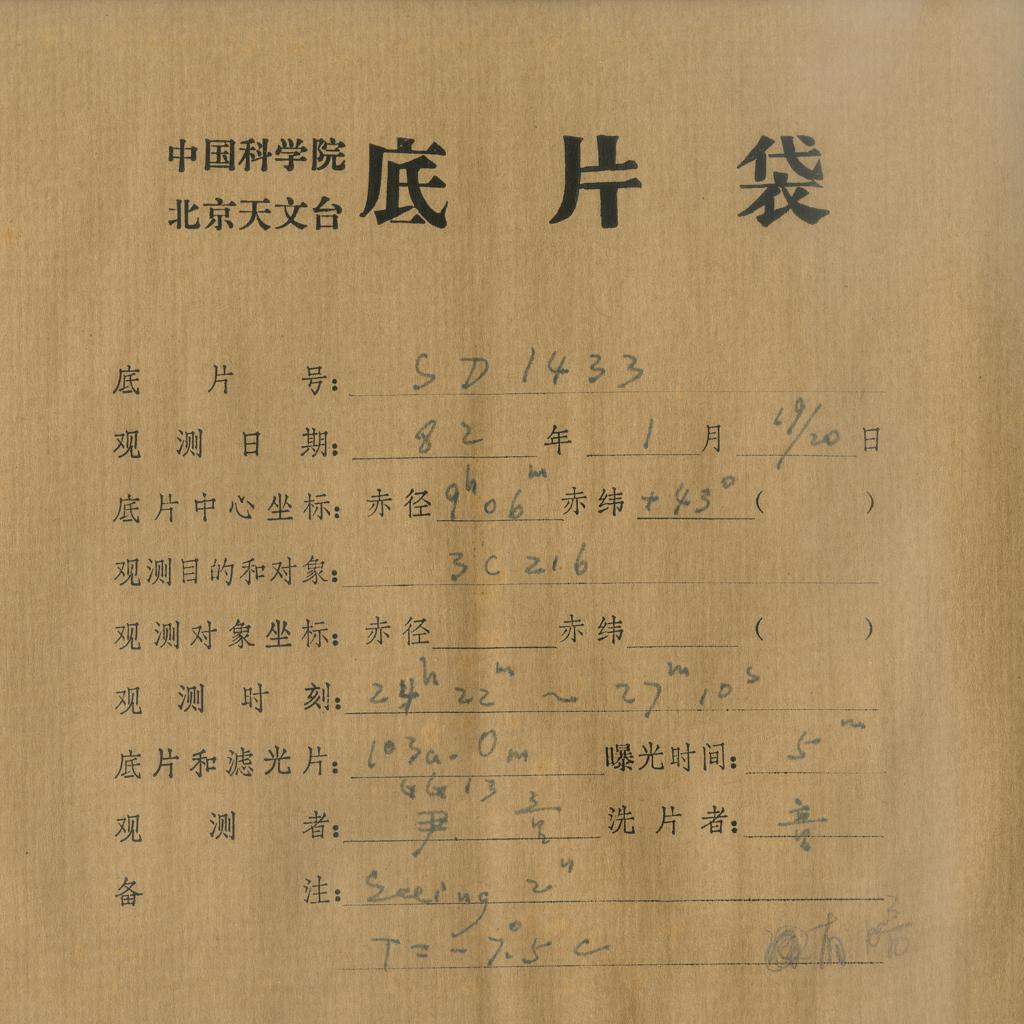 中国科学院
北京天文台
底片袋
底片号: SD 1433
观测日期: 82年 1月 19/20日
底片中心坐标: 赤径 9h06m 赤纬 +43° ( )
观测目的和对象: 3C216
观测对象坐标: 赤径 赤纬 ( )
观测时刻: 24h22m ~ 27m10s
底片和滤光片: 103a-O m 曝光时间: 5m
GG13
观测者: 尹 洗片者:
备注: Seeing 2"
T = -7°.5 C